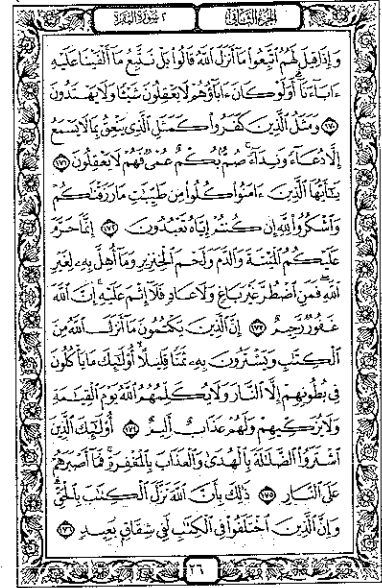 الجزء الثاني ٢ سورة البقرة
وَإِذَا قِيلَ لَهُمُ اتَّبِعُوا مَا أَنزَلَ اللَّهُ قَالُوا بَلْ نَتَّبِعُ مَا أَلْفَيْنَا عَلَيْهِ
ءَابَاءَنَا أَوَلَوْ كَانَ ءَابَاؤُهُمْ لَا يَعْقِلُونَ شَيْئًا وَلَا يَهْتَدُونَ
﴿١٧٠﴾ وَمَثَلُ الَّذِينَ كَفَرُوا كَمَثَلِ الَّذِي يَنْعِقُ بِمَا لَا يَسْمَعُ
إِلَّا دُعَاءً وَنِدَاءً صُمٌّ بُكْمٌ عُمْيٌ فَهُمْ لَا يَعْقِلُونَ ﴿١٧١﴾
يَـٰأَيُّهَا الَّذِينَ ءَامَنُوا كُلُوا مِن طَيِّبَـٰتِ مَا رَزَقْنَـٰكُمْ
وَاشْكُرُوا لِلَّهِ إِن كُنتُمْ إِيَّاهُ تَعْبُدُونَ ﴿١٧٢﴾ إِنَّمَا حَرَّمَ
عَلَيْكُمُ الْمَيْتَةَ وَالدَّمَ وَلَحْمَ الْخِنزِيرِ وَمَا أُهِلَّ بِهِ لِغَيْرِ
اللَّهِ فَمَنِ اضْطُرَّ غَيْرَ بَاغٍ وَلَا عَادٍ فَلَا إِثْمَ عَلَيْهِ إِنَّ اللَّهَ
غَفُورٌ رَّحِيمٌ ﴿١٧٣﴾ إِنَّ الَّذِينَ يَكْتُمُونَ مَا أَنزَلَ اللَّهُ مِنَ
الْكِتَـٰبِ وَيَشْتَرُونَ بِهِ ثَمَنًا قَلِيلًا أُولَـٰئِكَ مَا يَأْكُلُونَ
فِي بُطُونِهِمْ إِلَّا النَّارَ وَلَا يُكَلِّمُهُمُ اللَّهُ يَوْمَ الْقِيَـٰمَةِ
وَلَا يُزَكِّيهِمْ وَلَهُمْ عَذَابٌ أَلِيمٌ ﴿١٧٤﴾ أُولَـٰئِكَ الَّذِينَ
اشْتَرَوُا الضَّلَـٰلَةَ بِالْهُدَىٰ وَالْعَذَابَ بِالْمَغْفِرَةِ فَمَا أَصْبَرَهُمْ
عَلَى النَّارِ ﴿١٧٥﴾ ذَٰلِكَ بِأَنَّ اللَّهَ نَزَّلَ الْكِتَـٰبَ بِالْحَقِّ
وَإِنَّ الَّذِينَ اخْتَلَفُوا فِي الْكِتَـٰبِ لَفِي شِقَاقٍ بَعِيدٍ ﴿١٧٦﴾
٢٦